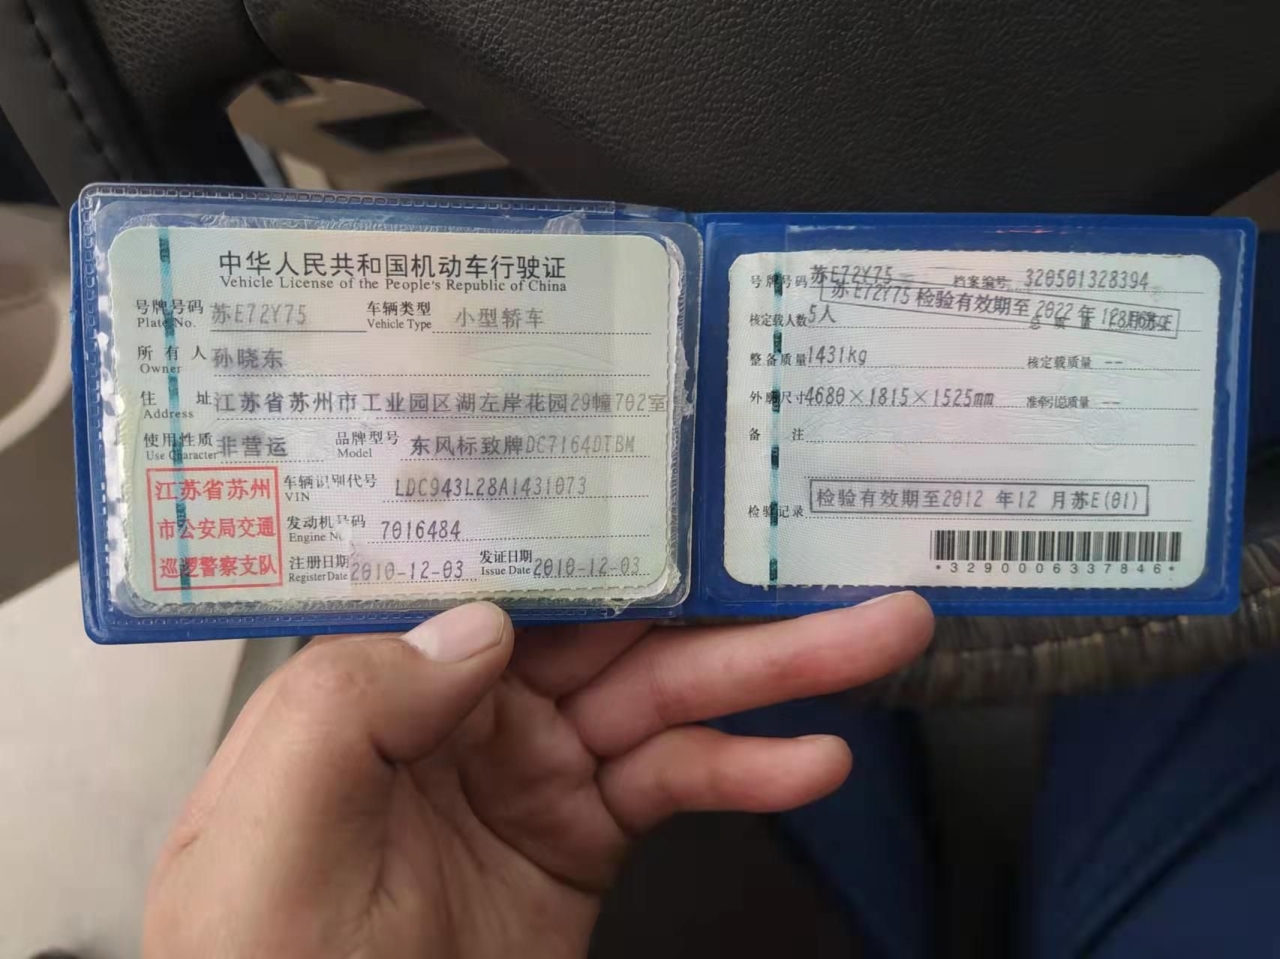 中华人民共和国机动车行驶证
Vehicle License of the People's Republic of China
号牌号码 苏E72Y75 车辆类型 小型轿车
Plate No. Vehicle Type
所有人 孙晓东
Owner
住址 江苏省苏州市工业园区湖左岸花园29幢702室
Address
使用性质 非营运 品牌型号 东风标致牌DC7164DTBM
Use Character Model
江苏省苏州
市公安局交通
巡逻警察支队
车辆识别代号 LDC943L28A1431073
VIN
发动机号码 7016484
Engine No.
注册日期 2010-12-03 发证日期 2010-12-03
Register Date Issue Date
号牌号码 苏E72Y75 档案编号 320501328394
苏E72Y75 检验有效期至 2022 年
核定载人数 5人
整备质量 1431kg 核定载质量 --
外廓尺寸 4680×1815×1525mm 准牵引总质量 --
备注
检验记录 检验有效期至2012 年12 月苏E(01)
*3290006337846*